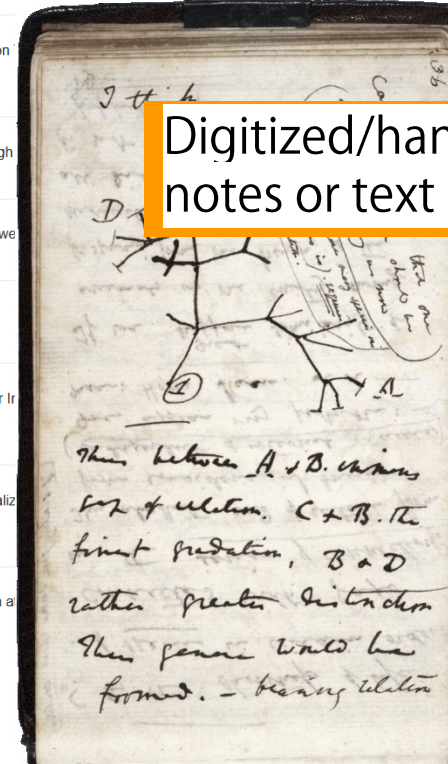 on
gh
we
r Ir
aliz
n at
36
I think
Ca
Digitized/han
notes or text
D
that on
should be
1
A
Thus between A & B. immens
gap of relation. C & B. the
finest gradation, B & D
rather greater distinction
Thus genera would be
formed. — bearing relation